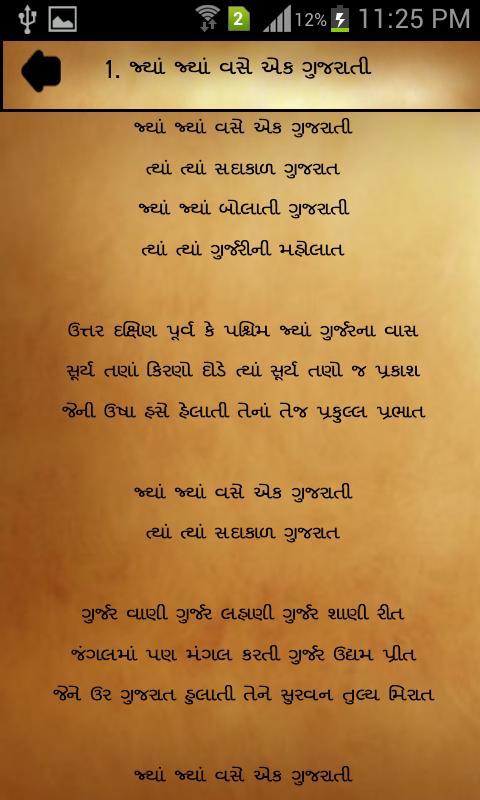 2 12% 11:25 PM
1. જ્યાં જ્યાં વસે એક ગુજરાતી
જ્યાં જ્યાં વસે એક ગુજરાતી
ત્યાં ત્યાં સદાકાળ ગુજરાત
જ્યાં જ્યાં બોલાતી ગુજરાતી
ત્યાં ત્યાં ગુર્જરીની મહોલાત
ઉત્તર દક્ષિણ પૂર્વ કે પશ્ચિમ જ્યાં ગુર્જરના વાસ
સૂર્ય તણાં કિરણો દોડે ત્યાં સૂર્ય તણો જ પ્રકાશ
જેની ઉષા હસે હેલાતી તેનાં તેજ પ્રફુલ્લ પ્રભાત
જ્યાં જ્યાં વસે એક ગુજરાતી
ત્યાં ત્યાં સદાકાળ ગુજરાત
ગુર્જર વાણી ગુર્જર લહાણી ગુર્જર શાણી રીત
જંગલમાં પણ મંગલ કરતી ગુર્જર ઉદ્યમ પ્રીત
જેને ઉર ગુજરાત હુલાતી તેને સુરવન તુલ્ય મિરાત
જ્યાં જ્યાં વસે એક ગુજરાતી